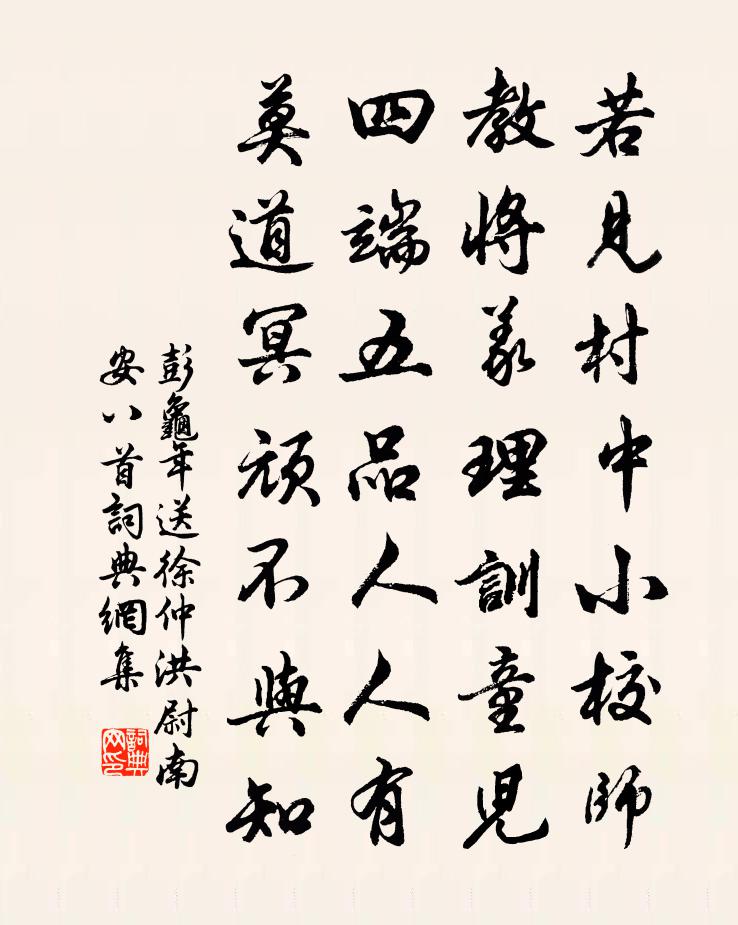 若見村中小校師
教將義理訓童兒
四端五品人人有
莫道冥頑不與知
彭龜年送徐仲洪尉南
安八首詞典網集
詞典
网印